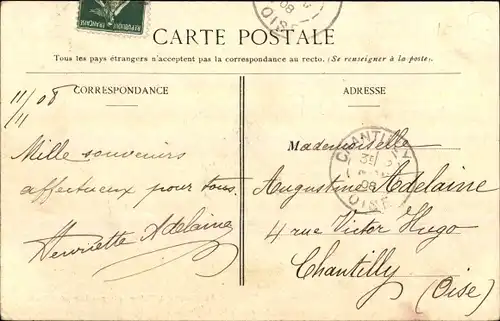 RÉPUBLIQUE FRANÇAISE
OISE
08
CARTE POSTALE
Tous les pays étrangers n'acceptent pas la correspondance au recto. (Se renseigner à la poste).
CORRESPONDANCE
11/08
/11
Mille souvenirs
affectueux pour tous.
Henriette Adelaine
ADRESSE
CHANTILLY
08
OISE
Mademoiselle
Augustine Adelaine
4 rue Victor Hugo
Chantilly
(Oise)